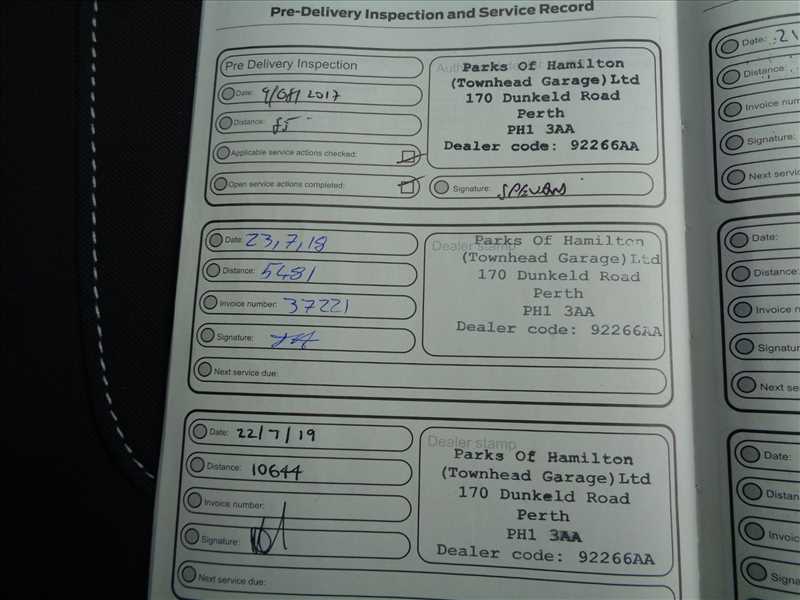 Pre-Delivery Inspection and Service Record
Pre Delivery Inspection
Date: 9/08/2017
Distance: 85
Applicable service actions checked:
Open service actions completed:
Parks Of Hamilton
(Townhead Garage)Ltd
170 Dunkeld Road
Perth
PH1 3AA
Dealer code: 92266AA
Signature:
Date: 23,7,18
Distance: 5481
Invoice number: 37221
Signature:
Next service due:
Dealer stamp
Parks Of Hamilton
(Townhead Garage)Ltd
170 Dunkeld Road
Perth
PH1 3AA
Dealer code: 92266AA
Date: 22/7/19
Distance: 10644
Invoice number:
Signature:
Next service due:
Dealer stamp
Parks Of Hamilton
(Townhead Garage)Ltd
170 Dunkeld Road
Perth
PH1 3AA
Dealer code: 92266AA
Date: 21
Distance:
Invoice
Signature:
Next
Date:
Distance:
Invoice
Next
Date: